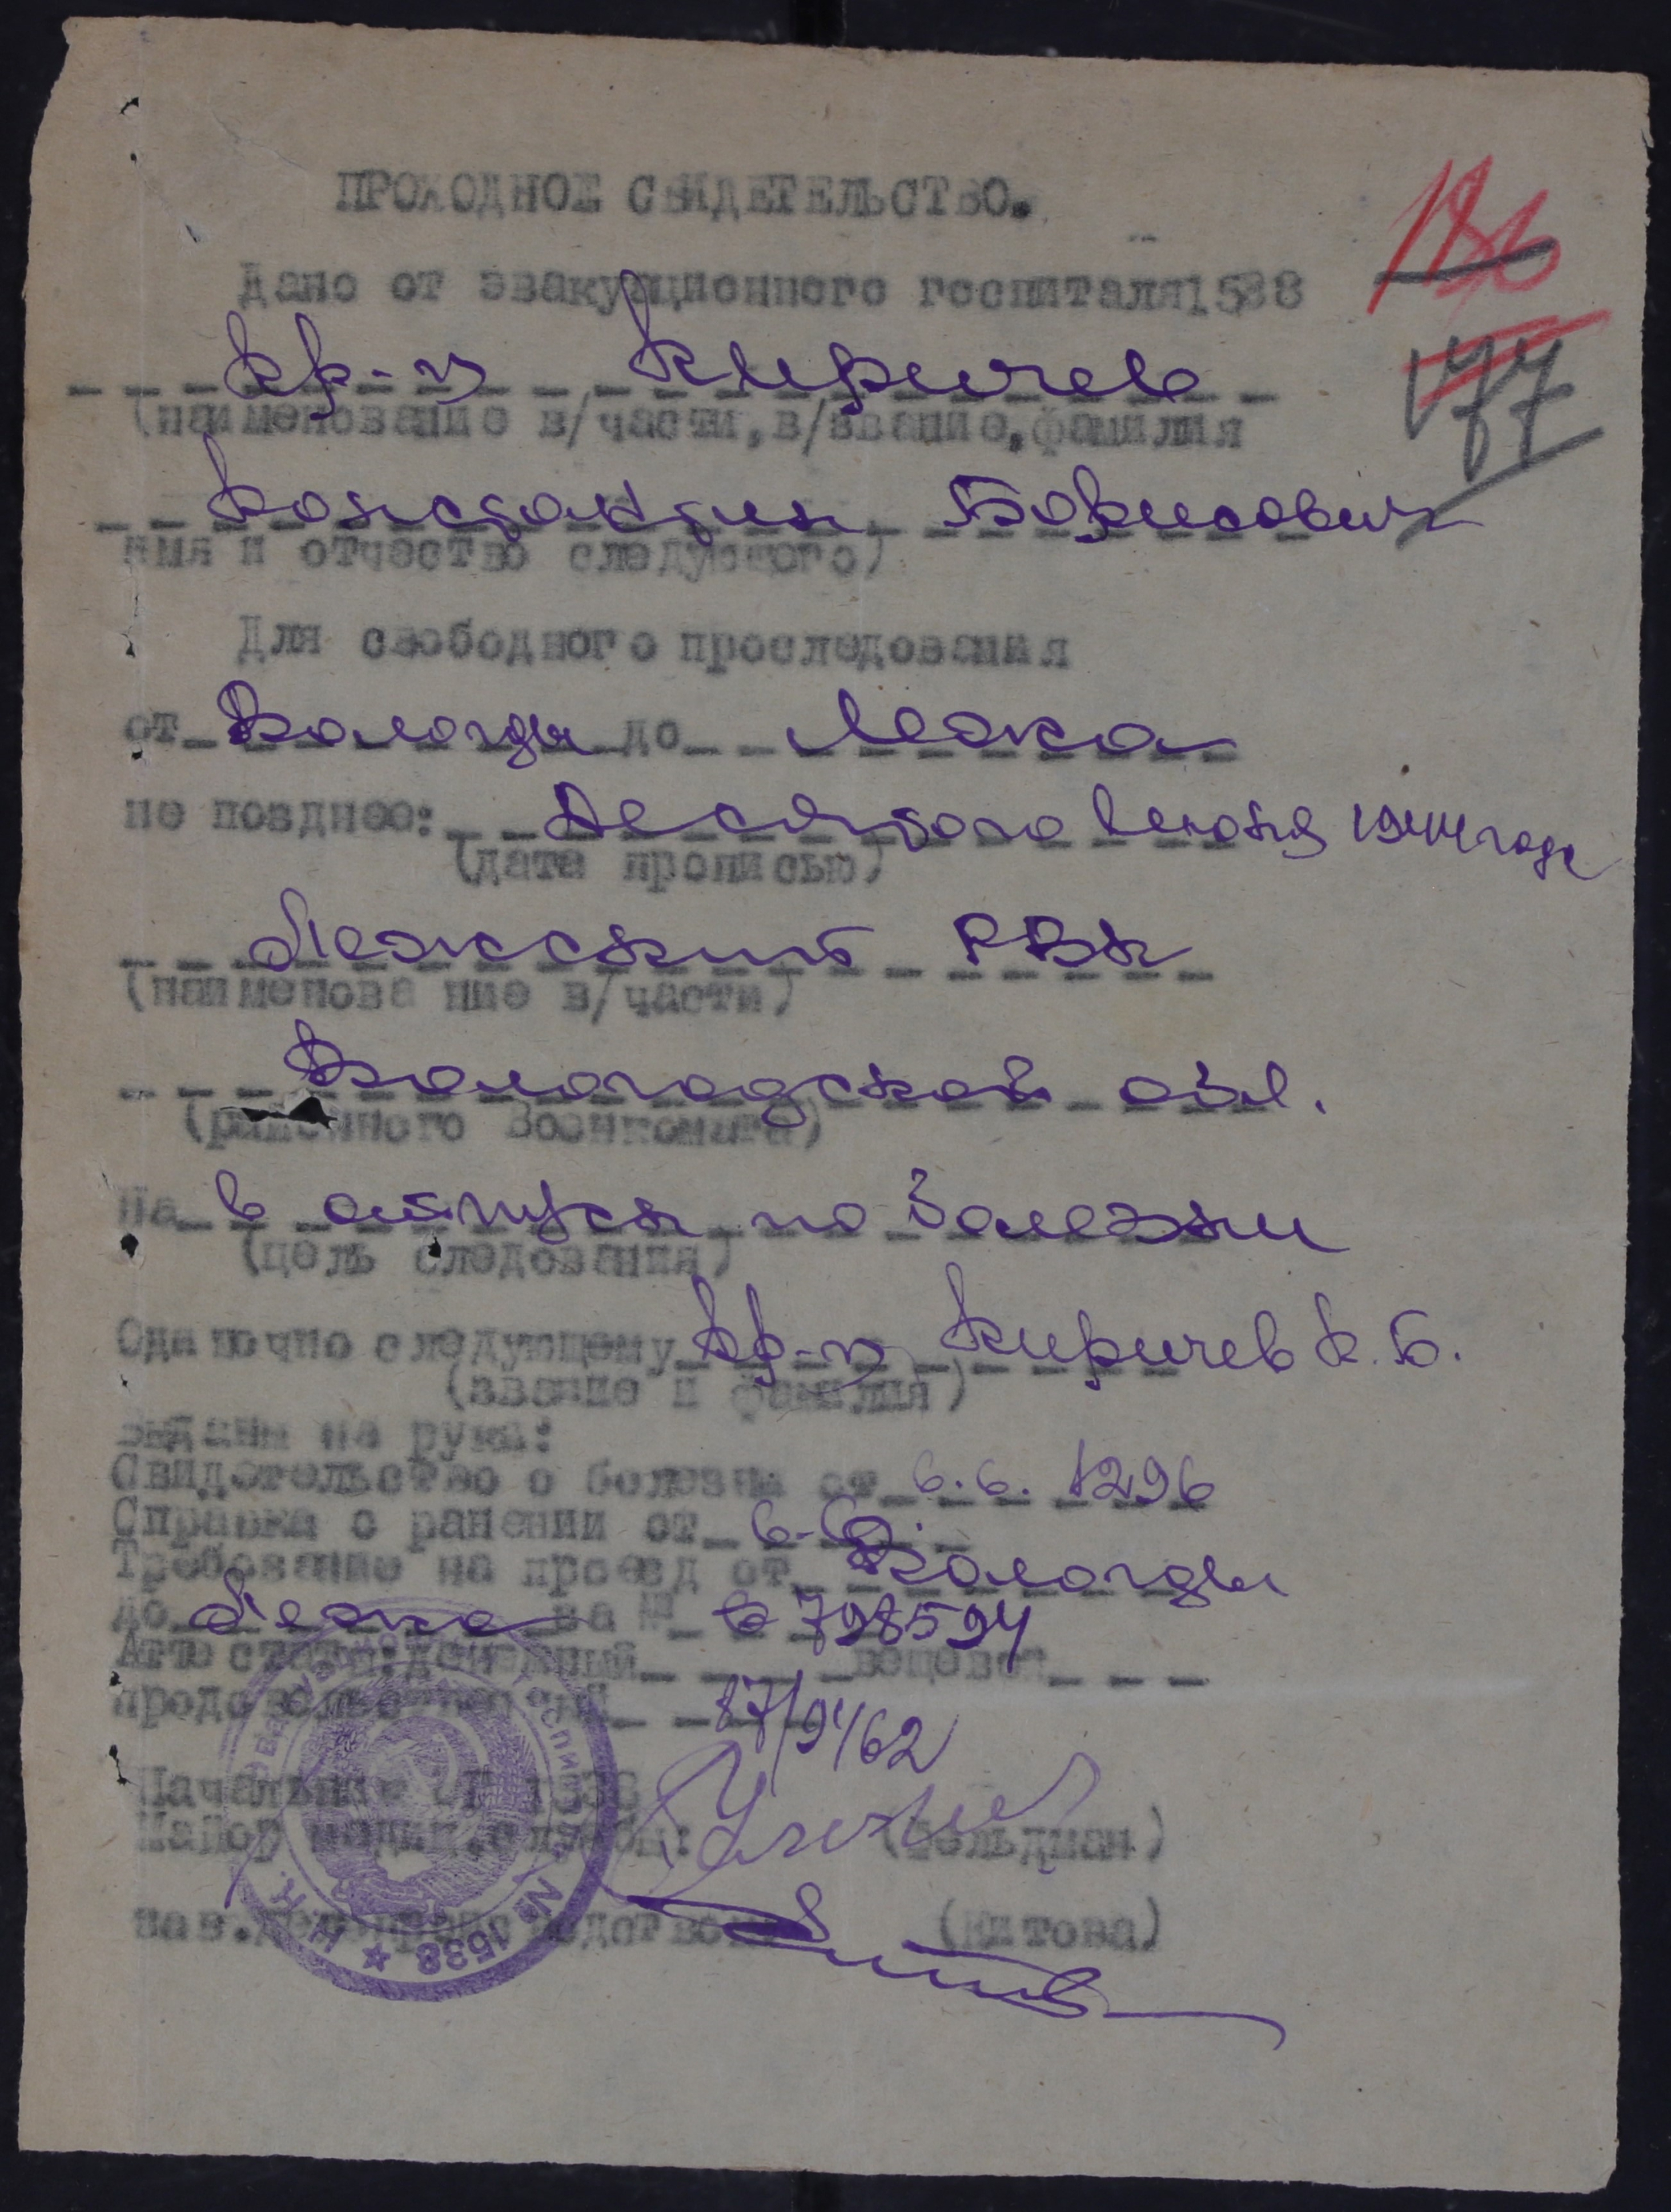 ПРОХОДНОЕ СВИДЕТЕЛЬСТВО.
186
Дано от эвакуационного госпиталя 1538
кр-ц Киричев
177
(наименование в/части, в/звание, фамилия
Константин Борисович
имя и отчество следующего)
Для свободного проследования
от Вологды до Лежа
не позднее: Десятого Июня 1944 года
(дата прописью)
Лежский РВК
(наименование в/части)
Вологодской обл.
(районного Военкомата)
На в отпуск по болезни
(цель следования)
Одиночно следующему кр-ц Киричев К.Б.
(звание и фамилия)
выданы на руки:
Свидетельство о болезни от 6.6. 1296
Справка о ранении от 6.6.
Требование на проезд от Вологды
до Лежа за № 798594
Аттестаты: денежный вещевой
продовольственный 87/9462
Начальник ЭГ 1538
Майор медиц. службы: (Фельдман)
Зав. делопроизводством (Китова)
№ 1538 ★ Н.